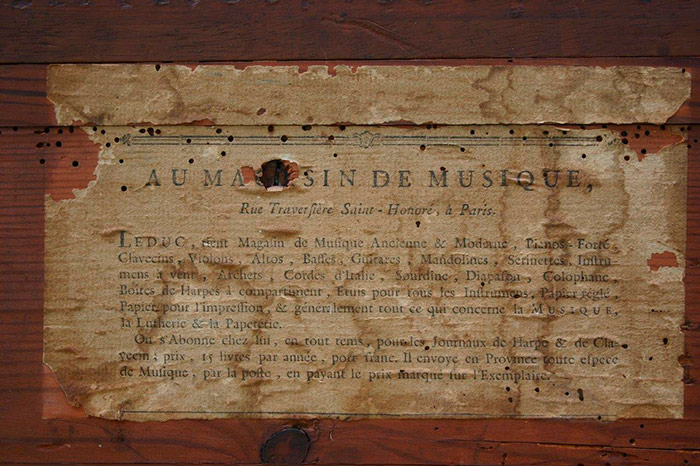 AU MAGASIN DE MUSIQUE,
Rue Traversière Saint-Honoré, à Paris.
LEDUC, tient Magasin de Musique Ancienne & Moderne, Pianos-Forte,
Clavecins, Violons, Altos, Basses, Guitares, Mandolines, Serinettes, Instru-
mens à vent, Archets, Cordes d'Italie, Sourdine, Diapason, Colophane,
Boîtes de Harpes à compartiment, Etuis pour tous les Instrumens, Papier réglé,
Papier pour l'impression, & généralement tout ce qui concerne la MUSIQUE,
la Lutherie & la Papeterie.
On s'Abonne chez lui, en tout tems, pour les Journaux de Harpe & de Cla-
vecin; prix, 15 livres par année, port franc. Il envoye en Province toute espece
de Musique, par la poste, en payant le prix marqué sur l'Exemplaire.